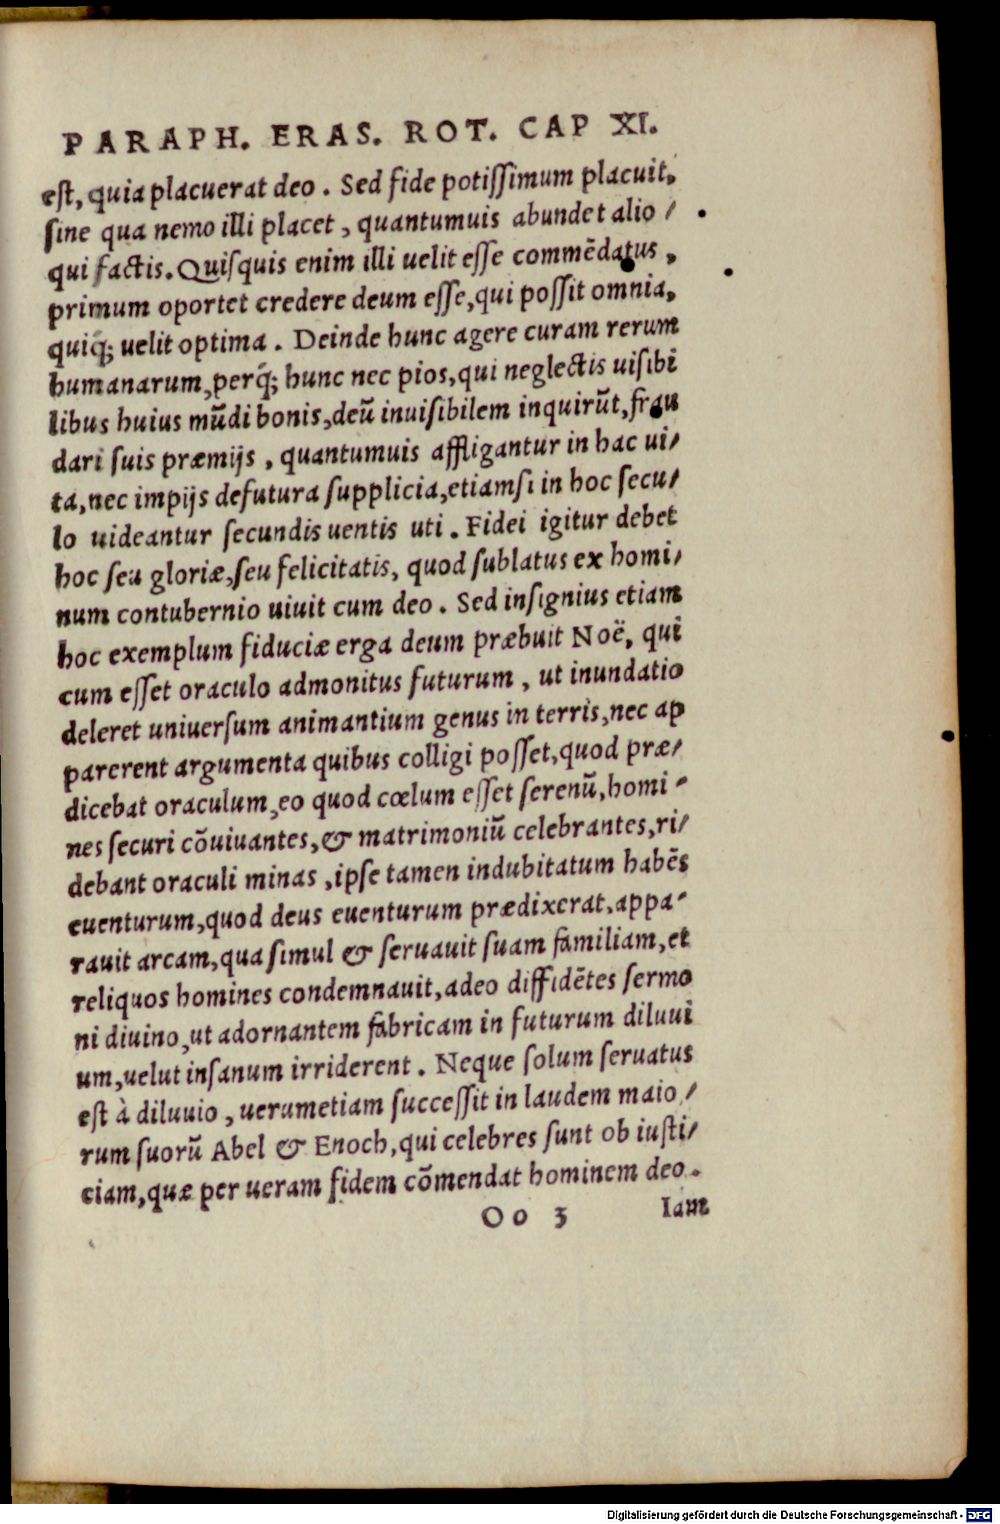 PARAPH. ERAS. ROT. CAP XI.
est, quia placuerat deo. Sed fide potissimum placuit,
sine qua nemo illi placet, quantumuis abundet alio/
qui factis. Quisquis enim illi uelit esse commēdatus,
primum oportet credere deum esse, qui possit omnia,
quiq́; uelit optima. Deinde hunc agere curam rerum
humanarum, perq́; hunc nec pios, qui neglectis uisibi
libus huius mūdi bonis, deū inuisibilem inquirūt, frau
dari suis præmijs, quantumuis affligantur in hac ui/
ta, nec impijs defutura supplicia, etiamsi in hoc secu/
lo uideantur secundis uentis uti. Fidei igitur debet
hoc seu gloriæ, seu felicitatis, quod sublatus ex homi/
num contubernio uiuit cum deo. Sed insignius etiam
hoc exemplum fiduciæ erga deum præbuit Noë, qui
cum esset oraculo admonitus futurum, ut inundatio
deleret uniuersum animantium genus in terris, nec ap
parerent argumenta quibus colligi posset, quod præ/
dicebat oraculum, eo quod cœlum esset serenū, homi/
nes securi cōuiuantes, & matrimoniū celebrantes, ri/
debant oraculi minas, ipse tamen indubitatum habēs
euenturum, quod deus euenturum prædixerat, appa/
rauit arcam, qua simul & seruauit suam familiam, et
reliquos homines condemnauit, adeo diffidētes sermo
ni diuino, ut adornantem fabricam in futurum diluui
um, uelut insanum irriderent. Neque solum seruatus
est à diluuio, uerumetiam successit in laudem maio/
rum suorū Abel & Enoch, qui celebres sunt ob iusti/
ciam, quæ per ueram fidem cōmendat hominem deo.
Oo 3 Iam
Digitalisierung gefördert durch die Deutsche Forschungsgemeinschaft - DFG